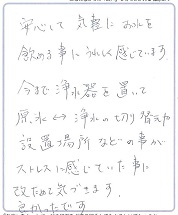 安心して 気軽に お水を
飲める事に うれしく感じています
今まで 浄水器を 置いて
原水 ↔ 浄水の切り替えや
設置場所 などの事が
ストレスに感じていた事に
改ためて 気づきます
良かったです